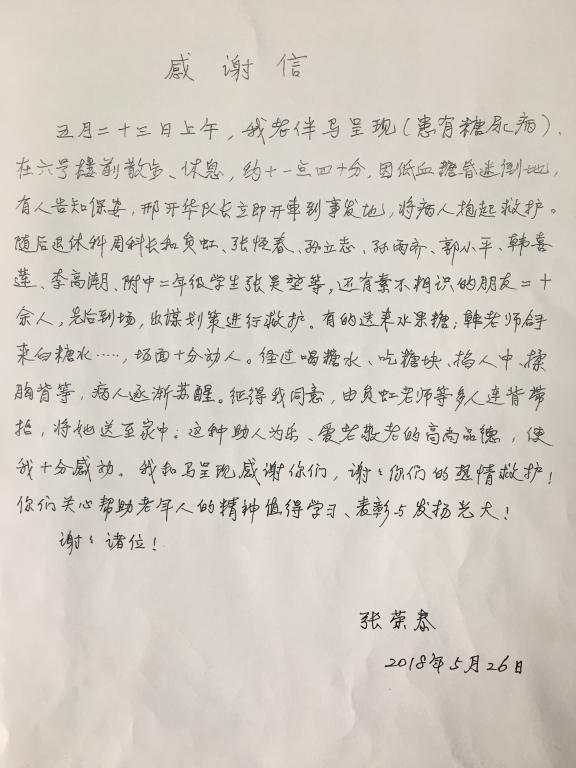 感谢信
五月二十三日上午，我老伴马呈现(患有糖尿病)，
在六号楼前散步、休息，约十一点四十分，因低血糖昏迷倒地，
有人告知保安，邢开华队长立即开车到事发地，将病人抱起救护。
随后退休科周科长和负虹、张恒春、孙立志、孙雨齐、郭小平、韩喜
莲、李高潮、附中二年级学生张昊堃等，还有素不相识的朋友二十
余人，先后到场，出谋划策进行救护。有的送来水果糖；韩老师
来白糖水……，场面十分动人。经过喝糖水、吃糖块、掐人中、揉
胸背等，病人逐渐苏醒。征得我同意，由负虹老师等多人连背带
抬，将她送至家中。这种助人为乐、爱老敬老的高尚品德，使
我十分感动。我和马呈现感谢你们，谢谢你们的热情救护！
你们关心帮助老年人的精神值得学习、表彰与发扬光大！
谢谢诸位！
张荣春
2018年5月26日